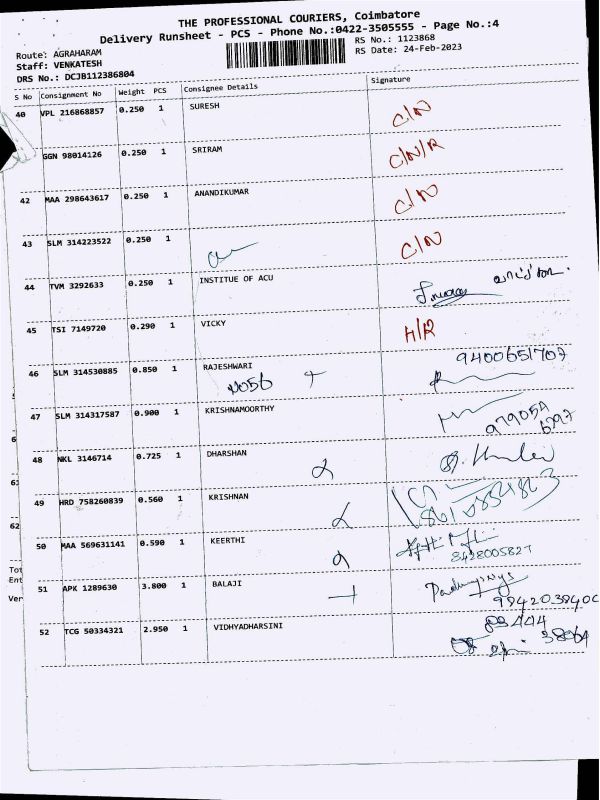 THE PROFESSIONAL COURIERS, Coimbatore
Delivery Runsheet - PCS - Phone No.:0422-3505555 - Page No.:4
Route: AGRAHARAM
RS No.: 1123868
Staff: VENKATESH
RS Date: 24-Feb-2023
DRS No.: DCJB112386804
S No Consignment No Weight PCS Consignee Details Signature
40 VPL 216868857 0.250 1 SURESH C/N
GGN 98014126 0.250 1 SRIRAM C/N/R
42 MAA 298643617 0.250 1 ANANDIKUMAR C/N
43 SLM 314223522 0.250 1 C/N
44 TVM 3292633 0.250 1 INSTITUE OF ACU
45 TSI 7149720 0.290 1 VICKY H/R
46 SLM 314530885 0.850 1 RAJESHWARI 9400651707
47 SLM 314317587 0.900 1 KRISHNAMOORTHY
48 NKL 3146714 0.725 1 DHARSHAN
49 HRD 758260839 0.560 1 KRISHNAN
50 MAA 569631141 0.590 1 KEERTHI
8428005827
51 APK 1289630 3.800 1 BALAJI
52 TCG 50334321 2.950 1 VIDHYADHARSINI
6
61
62
Tot
Ent
Ver